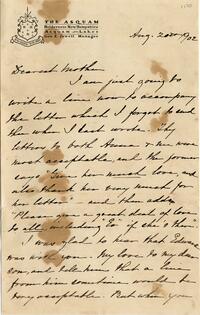 THE ASQUAM
Holderness, New Hampshire
Asquam Lakes
Leon J. Jewell Manager
Aug. 20th 1902
Dearest Mother
I am just going to
write a line now to accompany
the letter which I forgot to send
thee when I last wrote. Thy
letters to both Anna & me were
most acceptable, and the former
says "Give her much love, and
also thank her very much for
her letter" — and then adds
"Please give a great deal of love
to all, including E" if she's there."
I was glad to hear that Edward
was with you. My love to my dear
son, and tell him that a line
from him sometimes would be
very acceptable. But when you